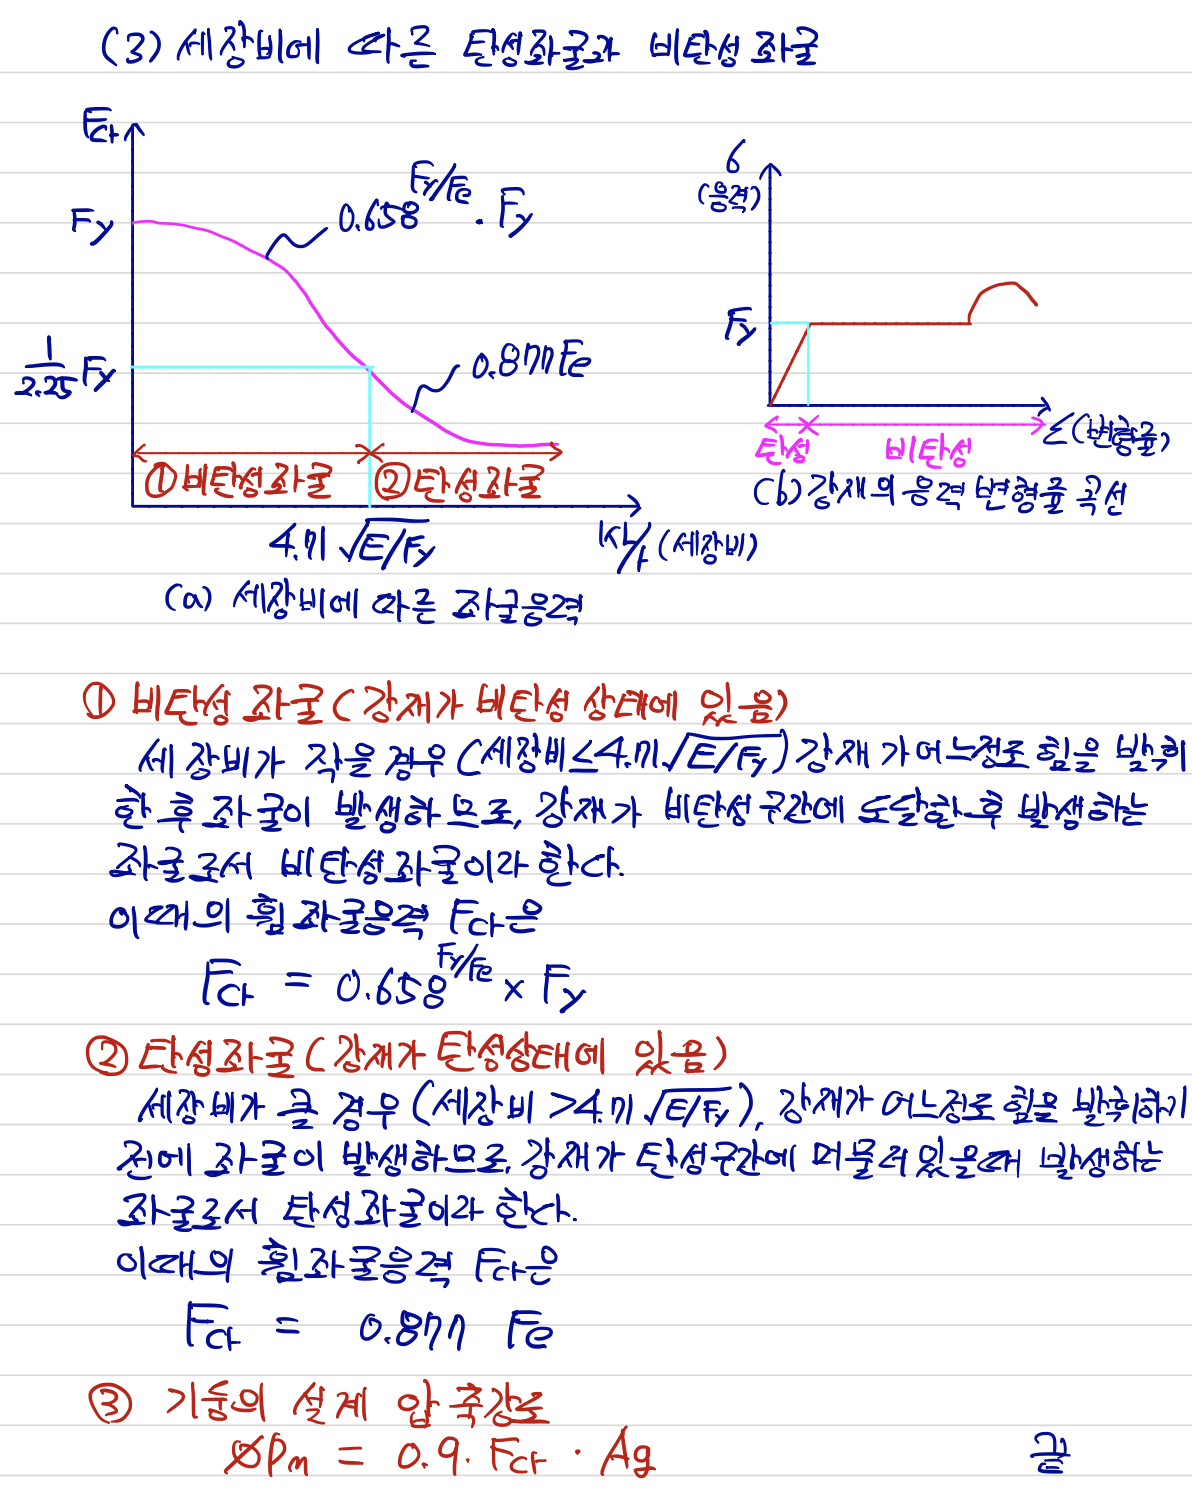 (3) 세장비에 따른 탄성좌굴과 비탄성 좌굴
Fcr
Fy
0.658^(Fy/Fe) · Fy
1/2.25 Fy
0.877Fe
① 비탄성좌굴
② 탄성좌굴
4.71 √E/Fy
KL/r (세장비)
(a) 세장비에 따른 좌굴응력
σ
(응력)
Fy
탄성
비탄성
ε(변형률)
(b) 강재의 응력 변형률 곡선
① 비탄성 좌굴 (강재가 비탄성 상태에 있음)
세장비가 작을 경우 (세장비≤4.71√E/Fy) 강재가 어느정도 힘을 발휘
한 후 좌굴이 발생하므로, 강재가 비탄성구간에 도달한 후 발생하는
좌굴로서 비탄성좌굴이라 한다.
이때의 휨좌굴응력 Fcr은
Fcr = 0.658^(Fy/Fe) × Fy
② 탄성좌굴 (강재가 탄성상태에 있음)
세장비가 클 경우 (세장비 >4.71√E/Fy), 강재가 어느정도 힘을 발휘하기
전에 좌굴이 발생하므로, 강재가 탄성구간에 머물러있을때 발생하는
좌굴로서 탄성좌굴이라 한다.
이때의 휨좌굴응력 Fcr은
Fcr = 0.877 Fe
③ 기둥의 설계 압축강도
øPn = 0.9 · Fcr · Ag
끝